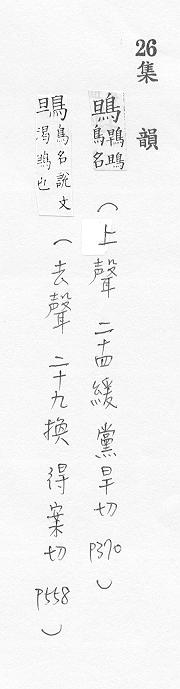 26集韻
鴠 鴠鳥名 (上聲 二十四緩 黨旱切 P370)
鴠 鳥名說文渴鴠也 (去聲 二十九換 得案切 P558)